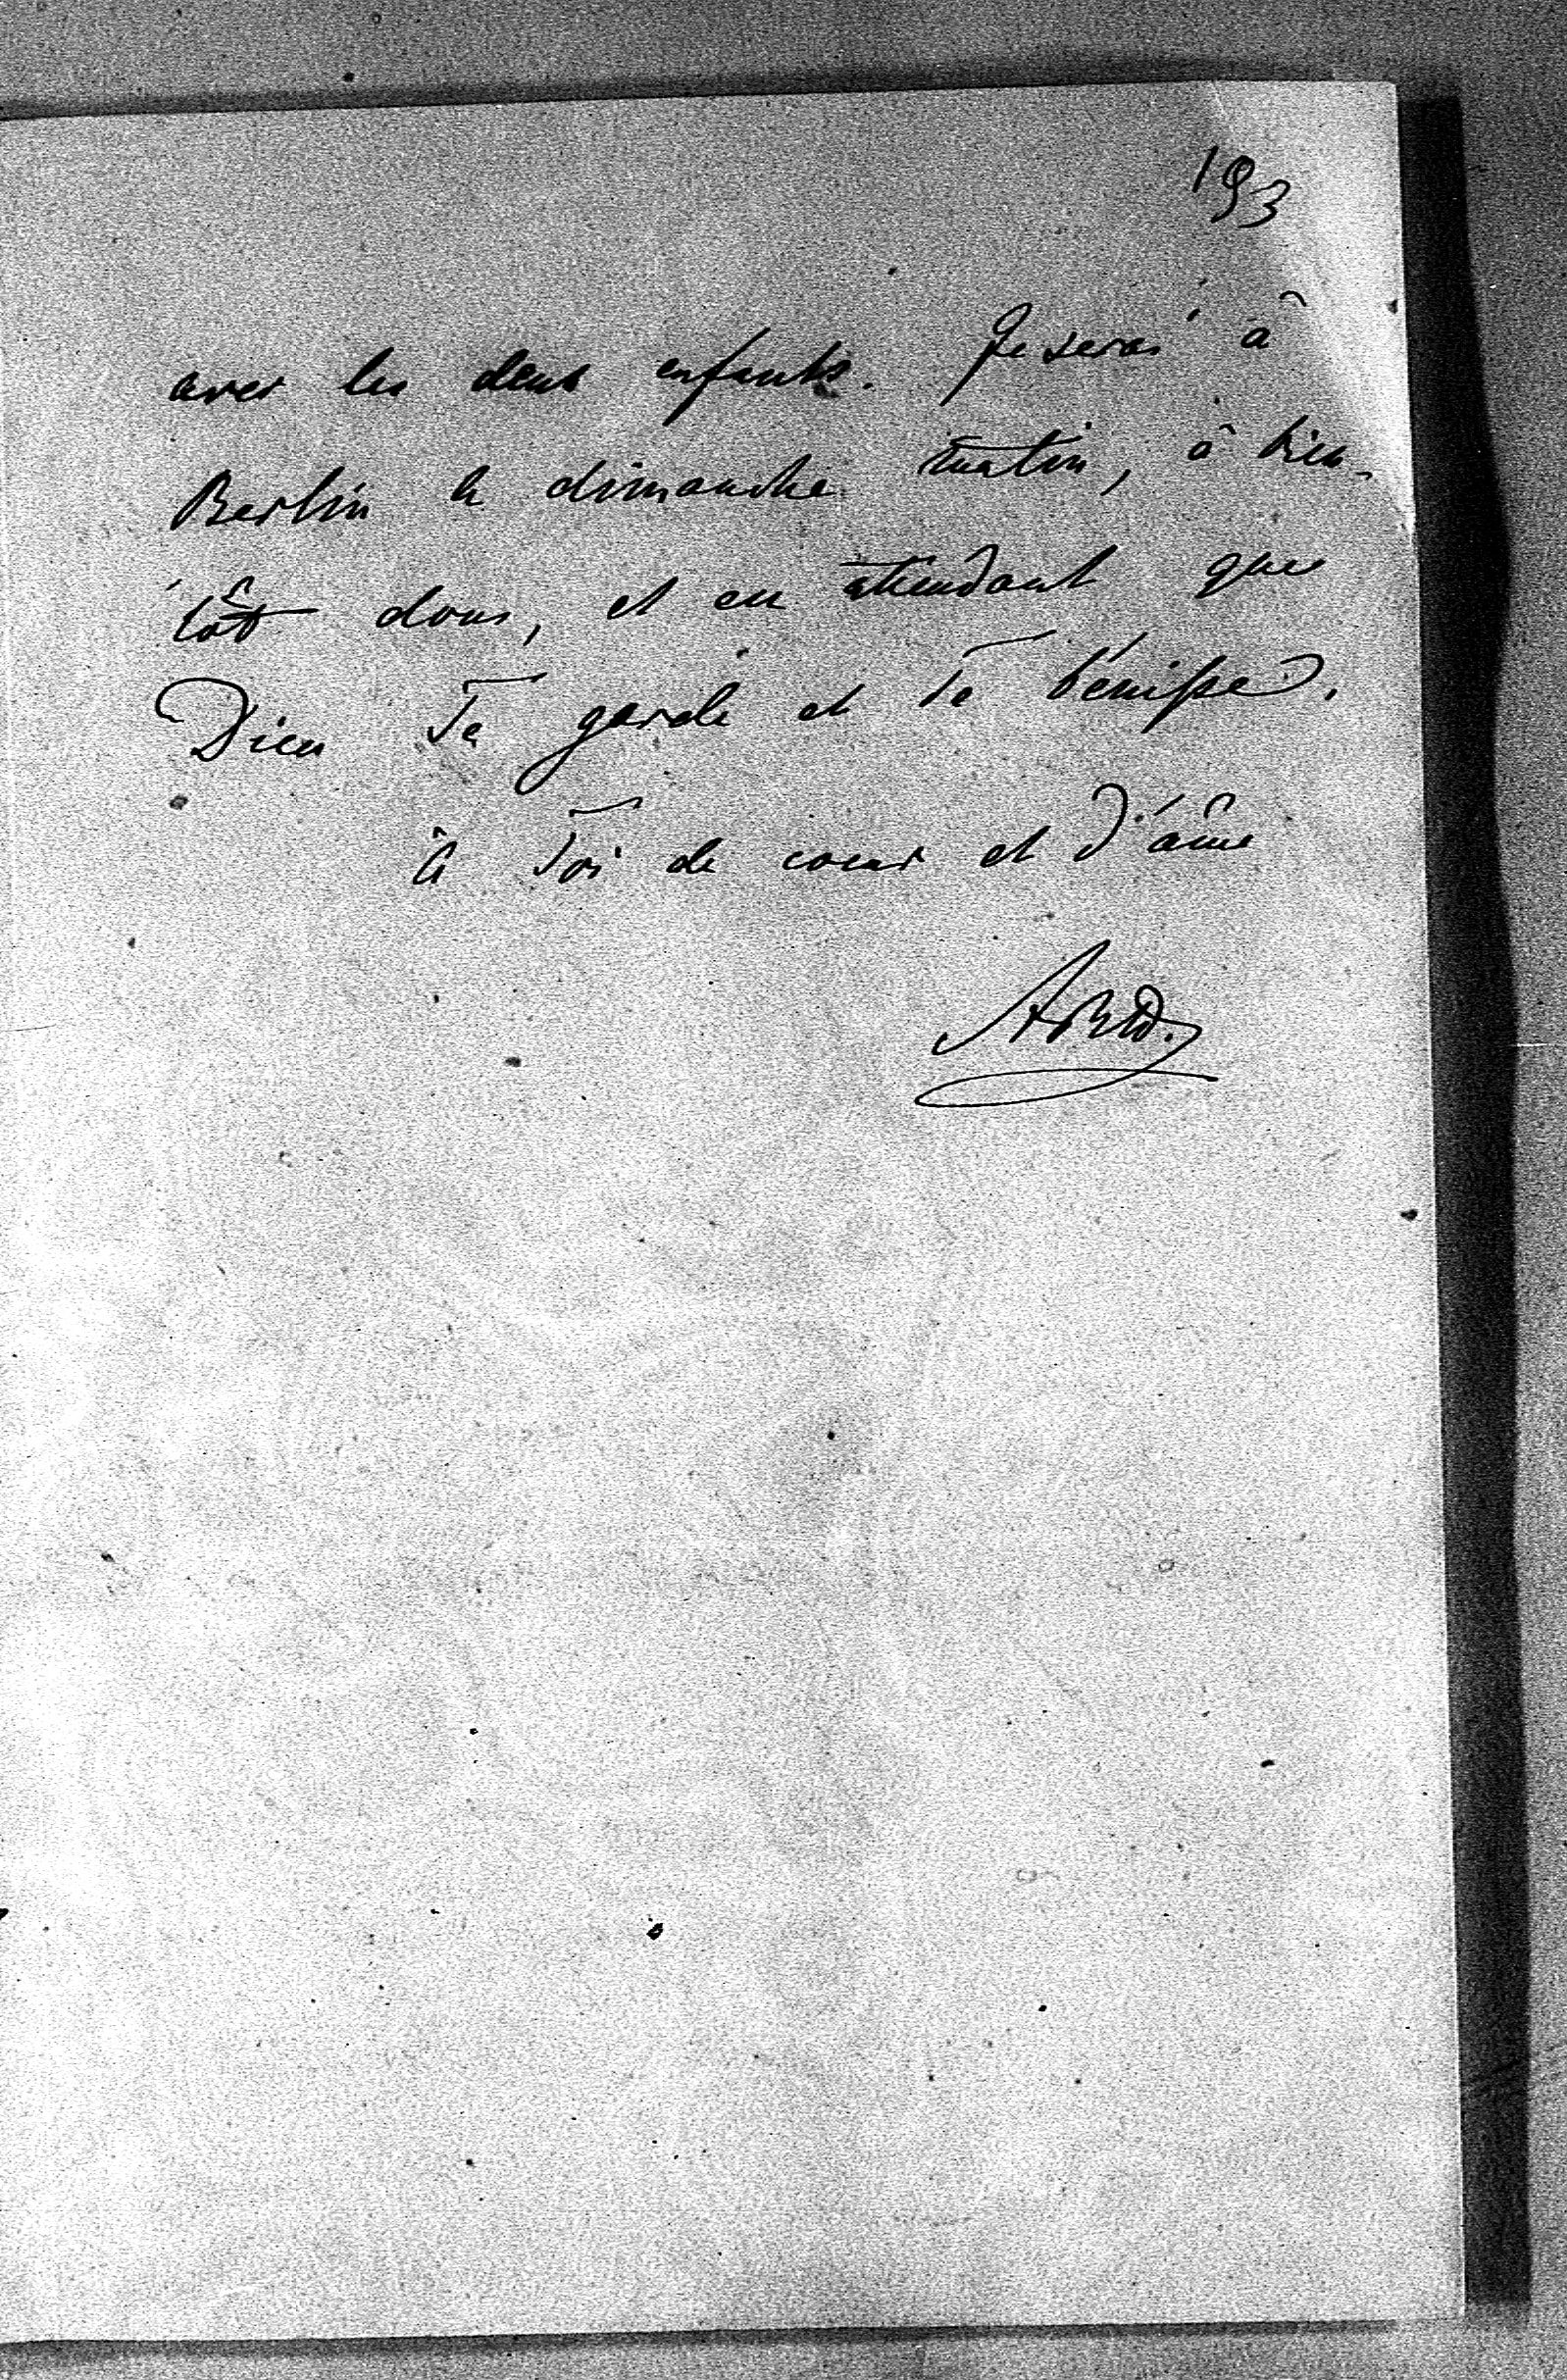 193
avec les deux enfants. Je serai à
Berlin le dimanche matin, à bien-
tôt donc, et en attendant que
Dieu Te garde et Te bénisse.
à Toi de coeur et d'âme